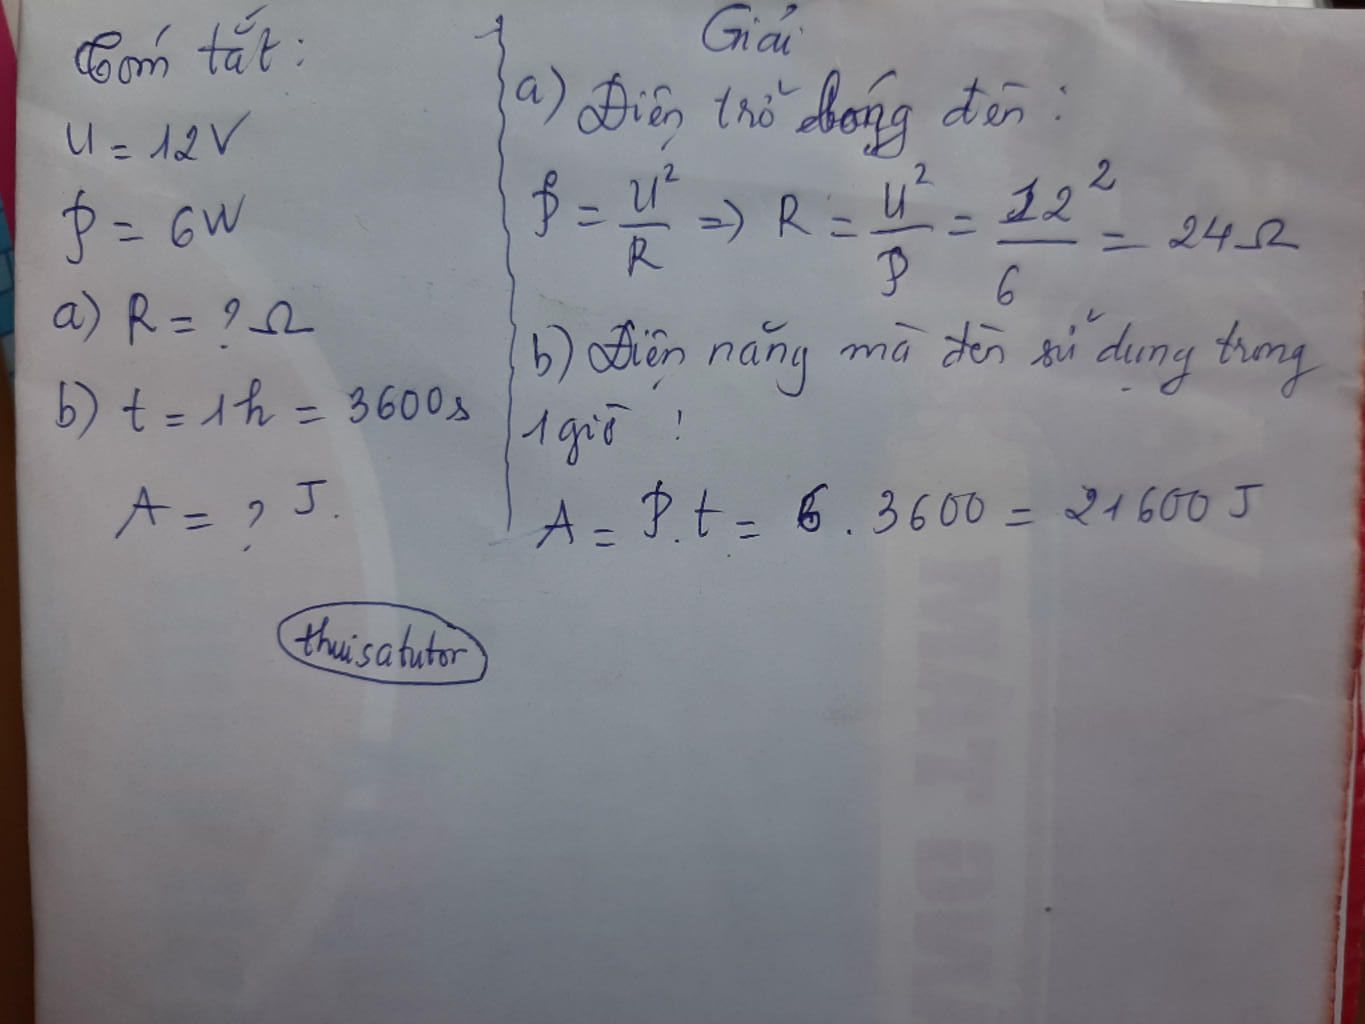 Tóm tắt:
U = 12V
P = 6W
a) R = ? Ω
b) t = 1h = 3600s
A = ? J.
Giải
a) Điện trở bóng đèn:
P = U²/R => R = U²/P = 12²/6 = 24Ω
b) Điện năng mà đèn sử dụng trong
1 giờ :
A = P.t = 6 . 3600 = 21600 J
thuisatutor